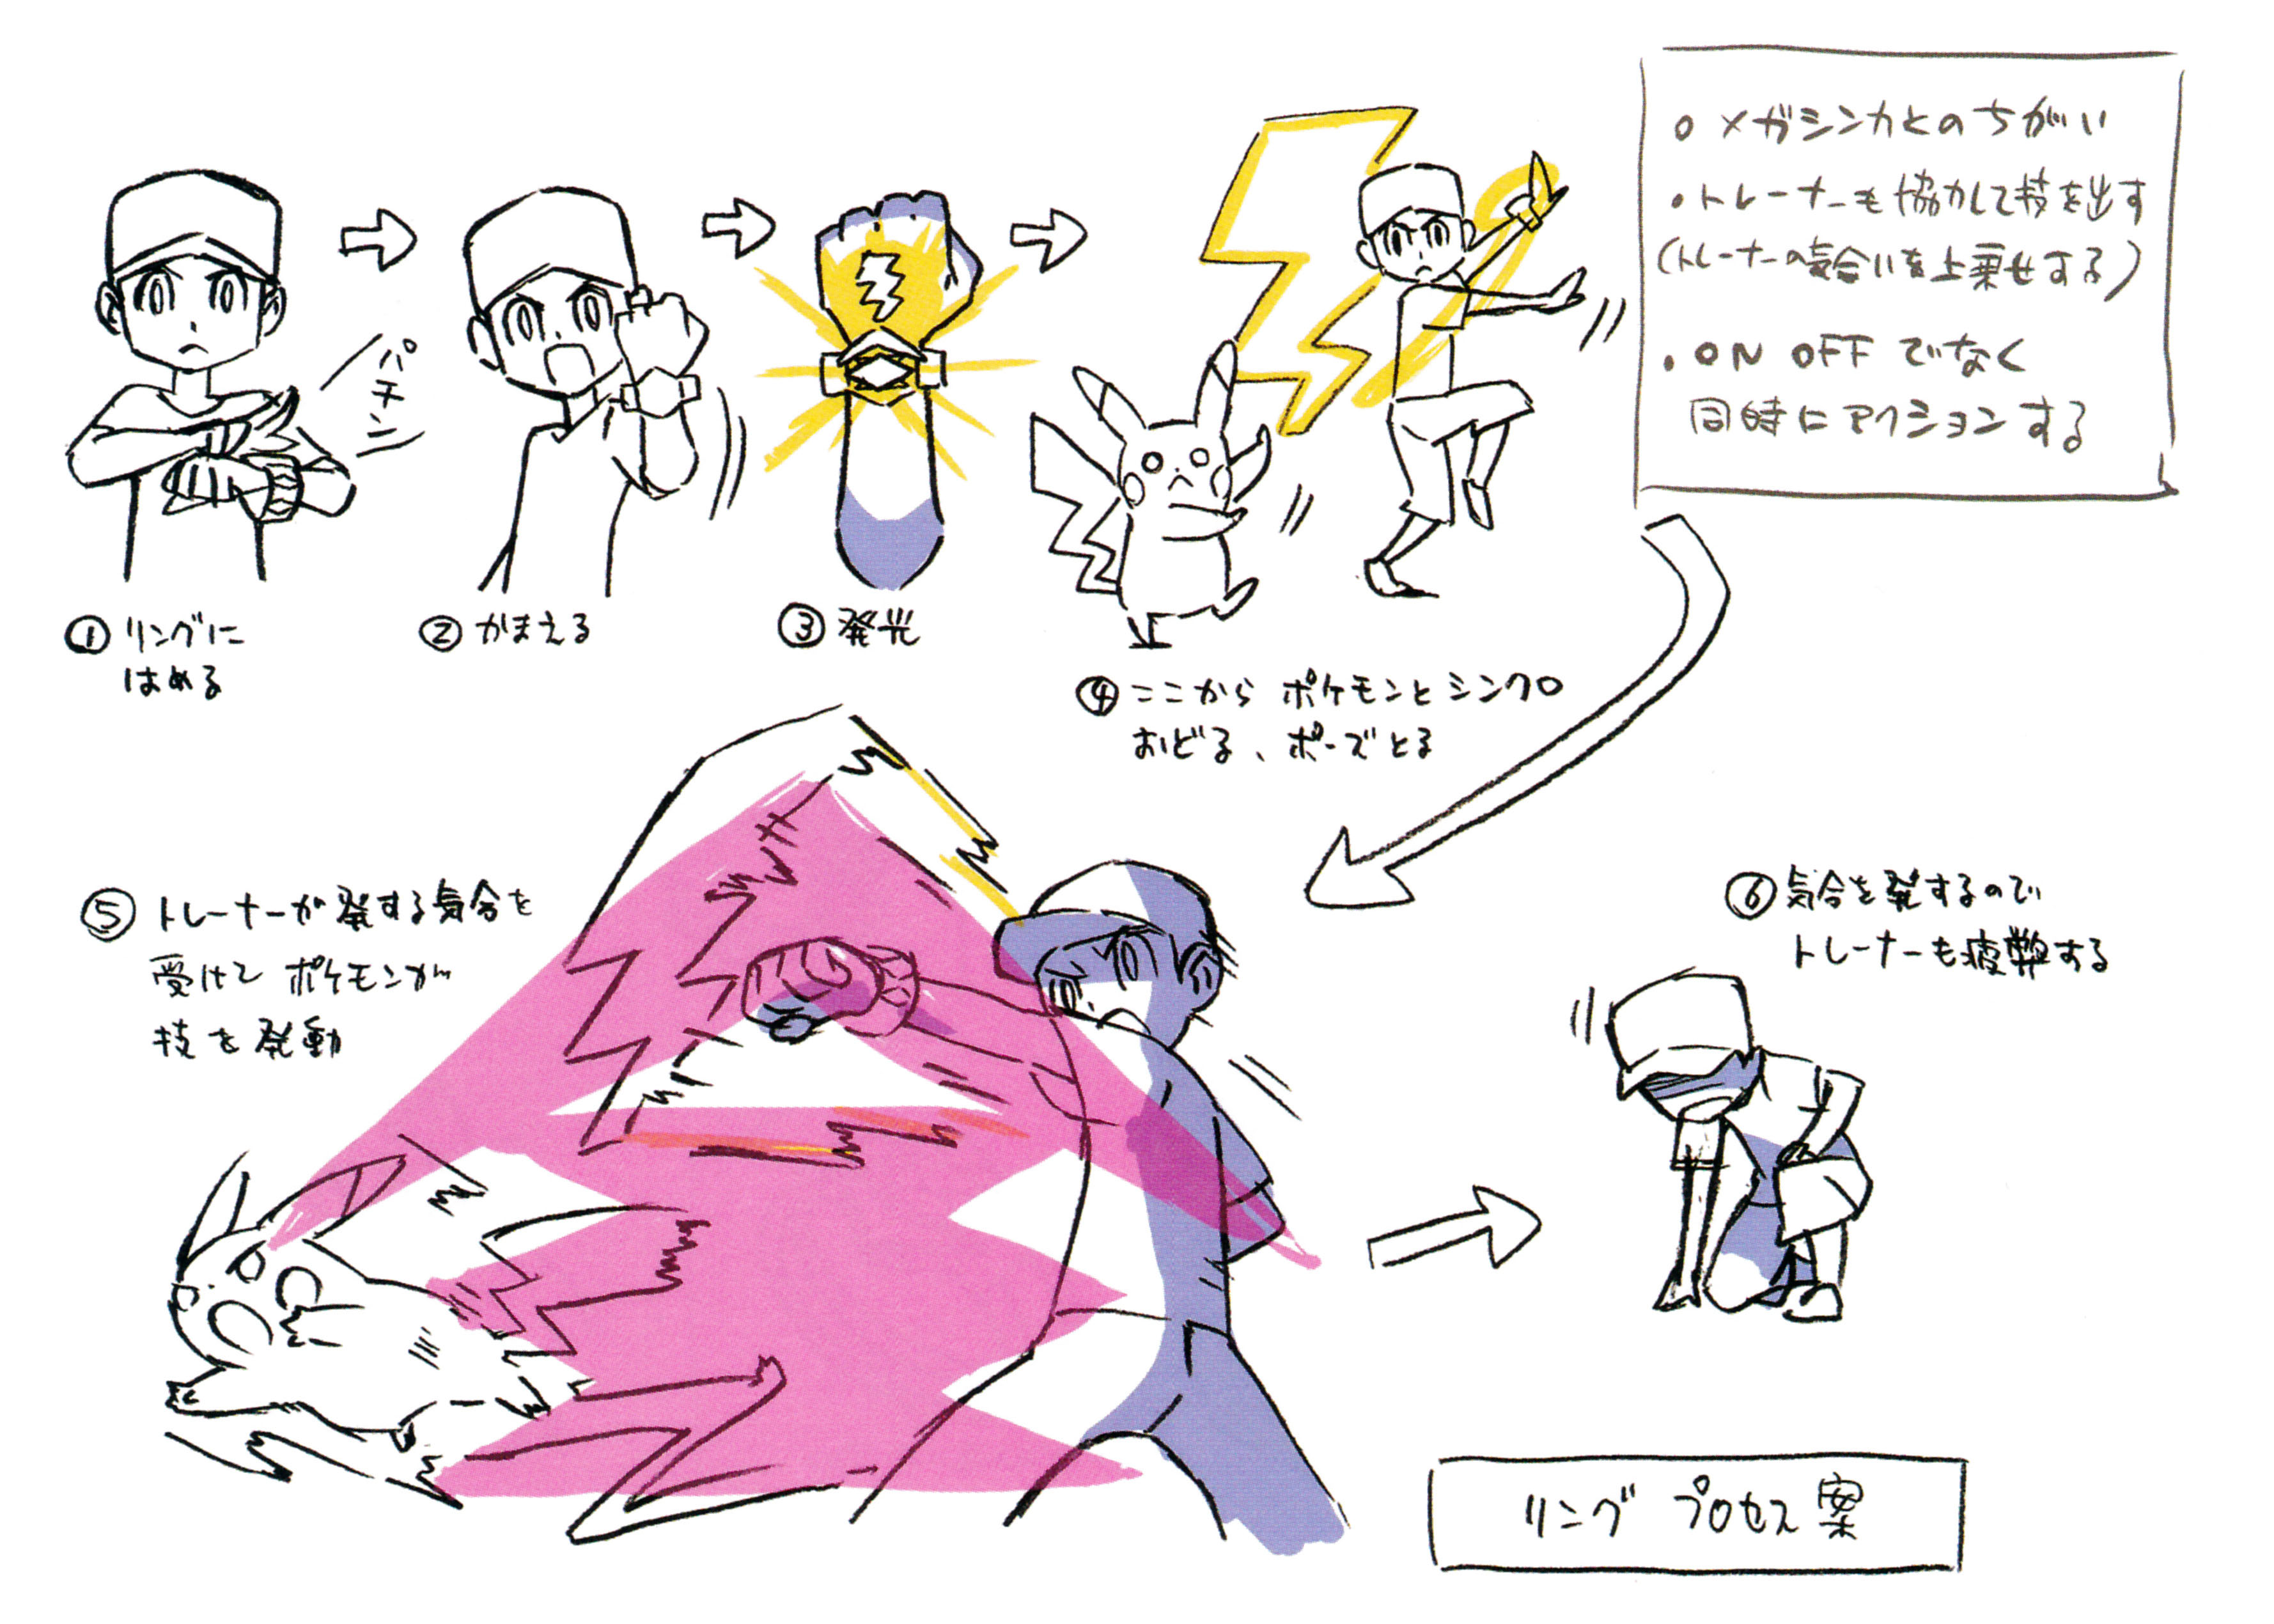 パチン
①リングに
はめる
②かまえる
③発光
④ここから ポケモンとシンクロ
おどる、ポーズとる
○メガシンカとのちがい
・トレーナーも協力して技を出す
(トレーナーの気合いを上乗せする)
・ON OFFでなく
同時にアクションする
⑤トレーナーが発する気合を
受けて ポケモンが
技を発動
⑥気合を発するので
トレーナーも疲弊する
リング プロセス案